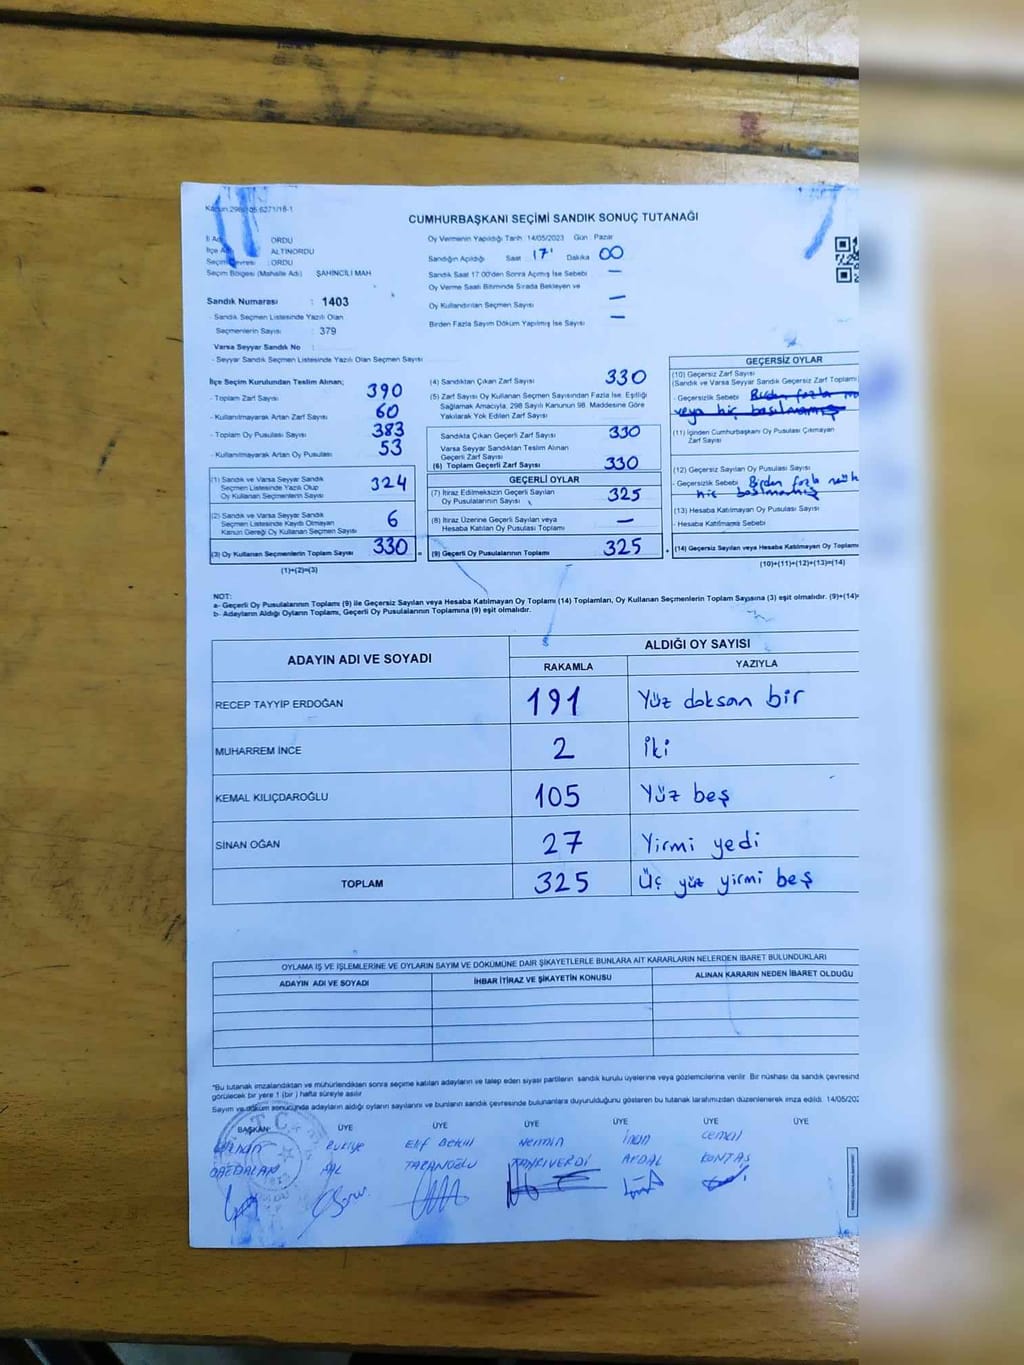 Kanun:298/105,6271/18-1
CUMHURBAŞKANI SEÇİMİ SANDIK SONUÇ TUTANAĞI
İl Adı : ORDU
İlçe Adı : ALTINORDU
Seçim Çevresi : ORDU
Seçim Bölgesi (Mahalle Adı) : ŞAHİNCİLİ MAH
Sandık Numarası : 1403
- Sandık Seçmen Listesinde Yazılı Olan
Seçmenlerin Sayısı : 379
Varsa Seyyar Sandık No :
- Seyyar Sandık Seçmen Listesinde Yazılı Olan Seçmen Sayısı
Oy Vermenin Yapıldığı Tarih : 14/05/2023 Gün : Pazar
Sandığın Açıldığı Saat : 17 Dakika 00
Sandık Saat 17:00'den Sonra Açmış İse Sebebi —
Oy Verme Saati Bitiminde Sırada Bekleyen ve
Oy Kullandırılan Seçmen Sayısı —
Birden Fazla Sayım Döküm Yapılmış İse Sayısı —
İlçe Seçim Kurulundan Teslim Alınan;
- Toplam Zarf Sayısı 390
- Kullanılmayarak Artan Zarf Sayısı 60
- Toplam Oy Pusulası Sayısı 383
- Kullanılmayarak Artan Oy Pusulası 53
(1) Sandık ve Varsa Seyyar Sandık
Seçmen Listesinde Yazılı Olup
Oy Kullanan Seçmenlerin Sayısı 324
(2) Sandık ve Varsa Seyyar Sandık
Seçmen Listesinde Kayıtlı Olmayan
Kanun Gereği Oy Kullanan Seçmen Sayısı 6
(3) Oy Kullanan Seçmenlerin Toplam Sayısı 330
(1)+(2)=(3)
(4) Sandıktan Çıkan Zarf Sayısı 330
(5) Zarf Sayısı Oy Kullanan Seçmen Sayısından Fazla İse, Eşitliği
Sağlamak Amacıyla, 298 Sayılı Kanunun 98. Maddesine Göre
Yakılarak Yok Edilen Zarf Sayısı
Sandıkta Çıkan Geçerli Zarf Sayısı 330
Varsa Seyyar Sandıktan Teslim Alınan
Geçerli Zarf Sayısı
(6) Toplam Geçerli Zarf Sayısı 330
GEÇERLİ OYLAR
(7) İtiraz Edilmeksizin Geçerli Sayılan
Oy Pusulalarının Sayısı 325
(8) İtiraz Üzerine Geçerli Sayılan veya
Hesaba Katılan Oy Pusulası Toplamı —
(9) Geçerli Oy Pusulalarının Toplamı 325
GEÇERSİZ OYLAR
(10) Geçersiz Zarf Sayısı
(Sandık ve Varsa Seyyar Sandık Geçersiz Zarf Toplamı
- Geçersizlik Sebebi Birden fazla
veya hiç basılmamış
(11) İçinden Cumhurbaşkanı Oy Pusulası Çıkmayan
Zarf Sayısı
(12) Geçersiz Sayılan Oy Pusulası Sayısı
- Geçersizlik Sebebi Birden fazla
hiç basılmamış
(13) Hesaba Katılmayan Oy Pusulası Sayısı
- Hesaba Katılmama Sebebi
(14) Geçersiz Sayılan veya Hesaba Katılmayan Oy Toplamı
(10)+(11)+(12)+(13)=(14)
NOT:
a- Geçerli Oy Pusulalarının Toplamı (9) ile Geçersiz Sayılan veya Hesaba Katılmayan Oy Toplamı (14) Toplamları, Oy Kullanan Seçmenlerin Toplam Sayısına (3) eşit olmalıdır. (9)+(14)=
b- Adayların Aldığı Oyların Toplamı, Geçerli Oy Pusulalarının Toplamına (9) eşit olmalıdır.
ADAYIN ADI VE SOYADI
ALDIĞI OY SAYISI
RAKAMLA YAZIYLA
RECEP TAYYİP ERDOĞAN 191 Yüz doksan bir
MUHARREM İNCE 2 İki
KEMAL KILIÇDAROĞLU 105 Yüz beş
SİNAN OĞAN 27 Yirmi yedi
TOPLAM 325 Üç yüz yirmi beş
OYLAMA İŞ VE İŞLEMLERİNE VE OYLARIN SAYIM VE DÖKÜMÜNE DAİR ŞİKAYETLERLE BUNLARA AİT KARARLARIN NELERDEN İBARET BULUNDUKLARI
ADAYIN ADI VE SOYADI İHBAR İTİRAZ VE ŞİKAYETİN KONUSU ALINAN KARARIN NEDEN İBARET OLDUĞU
"Bu tutanak imzalandıktan ve mühürlendikten sonra seçime katılan adayların ve talep eden siyasi partilerin sandık kurulu üyelerine veya gözlemcilerine verilir. Bir nüshası da sandık çevresinde
görülecek bir yere 1 (bir) hafta süreyle asılır
Sayım ve döküm sonucunda adayların aldığı oyların sayılarını ve bunların sandık çevresinde bulunanlara duyurulduğunu gösteren bu tutanak tarafımızdan düzenlenerek imza edildi. 14/05/202
BAŞKAN ÜYE ÜYE ÜYE ÜYE ÜYE ÜYE
Rukiye Elif Betül Nermin İnan Cemal
TANRIVERDİ
T.C.